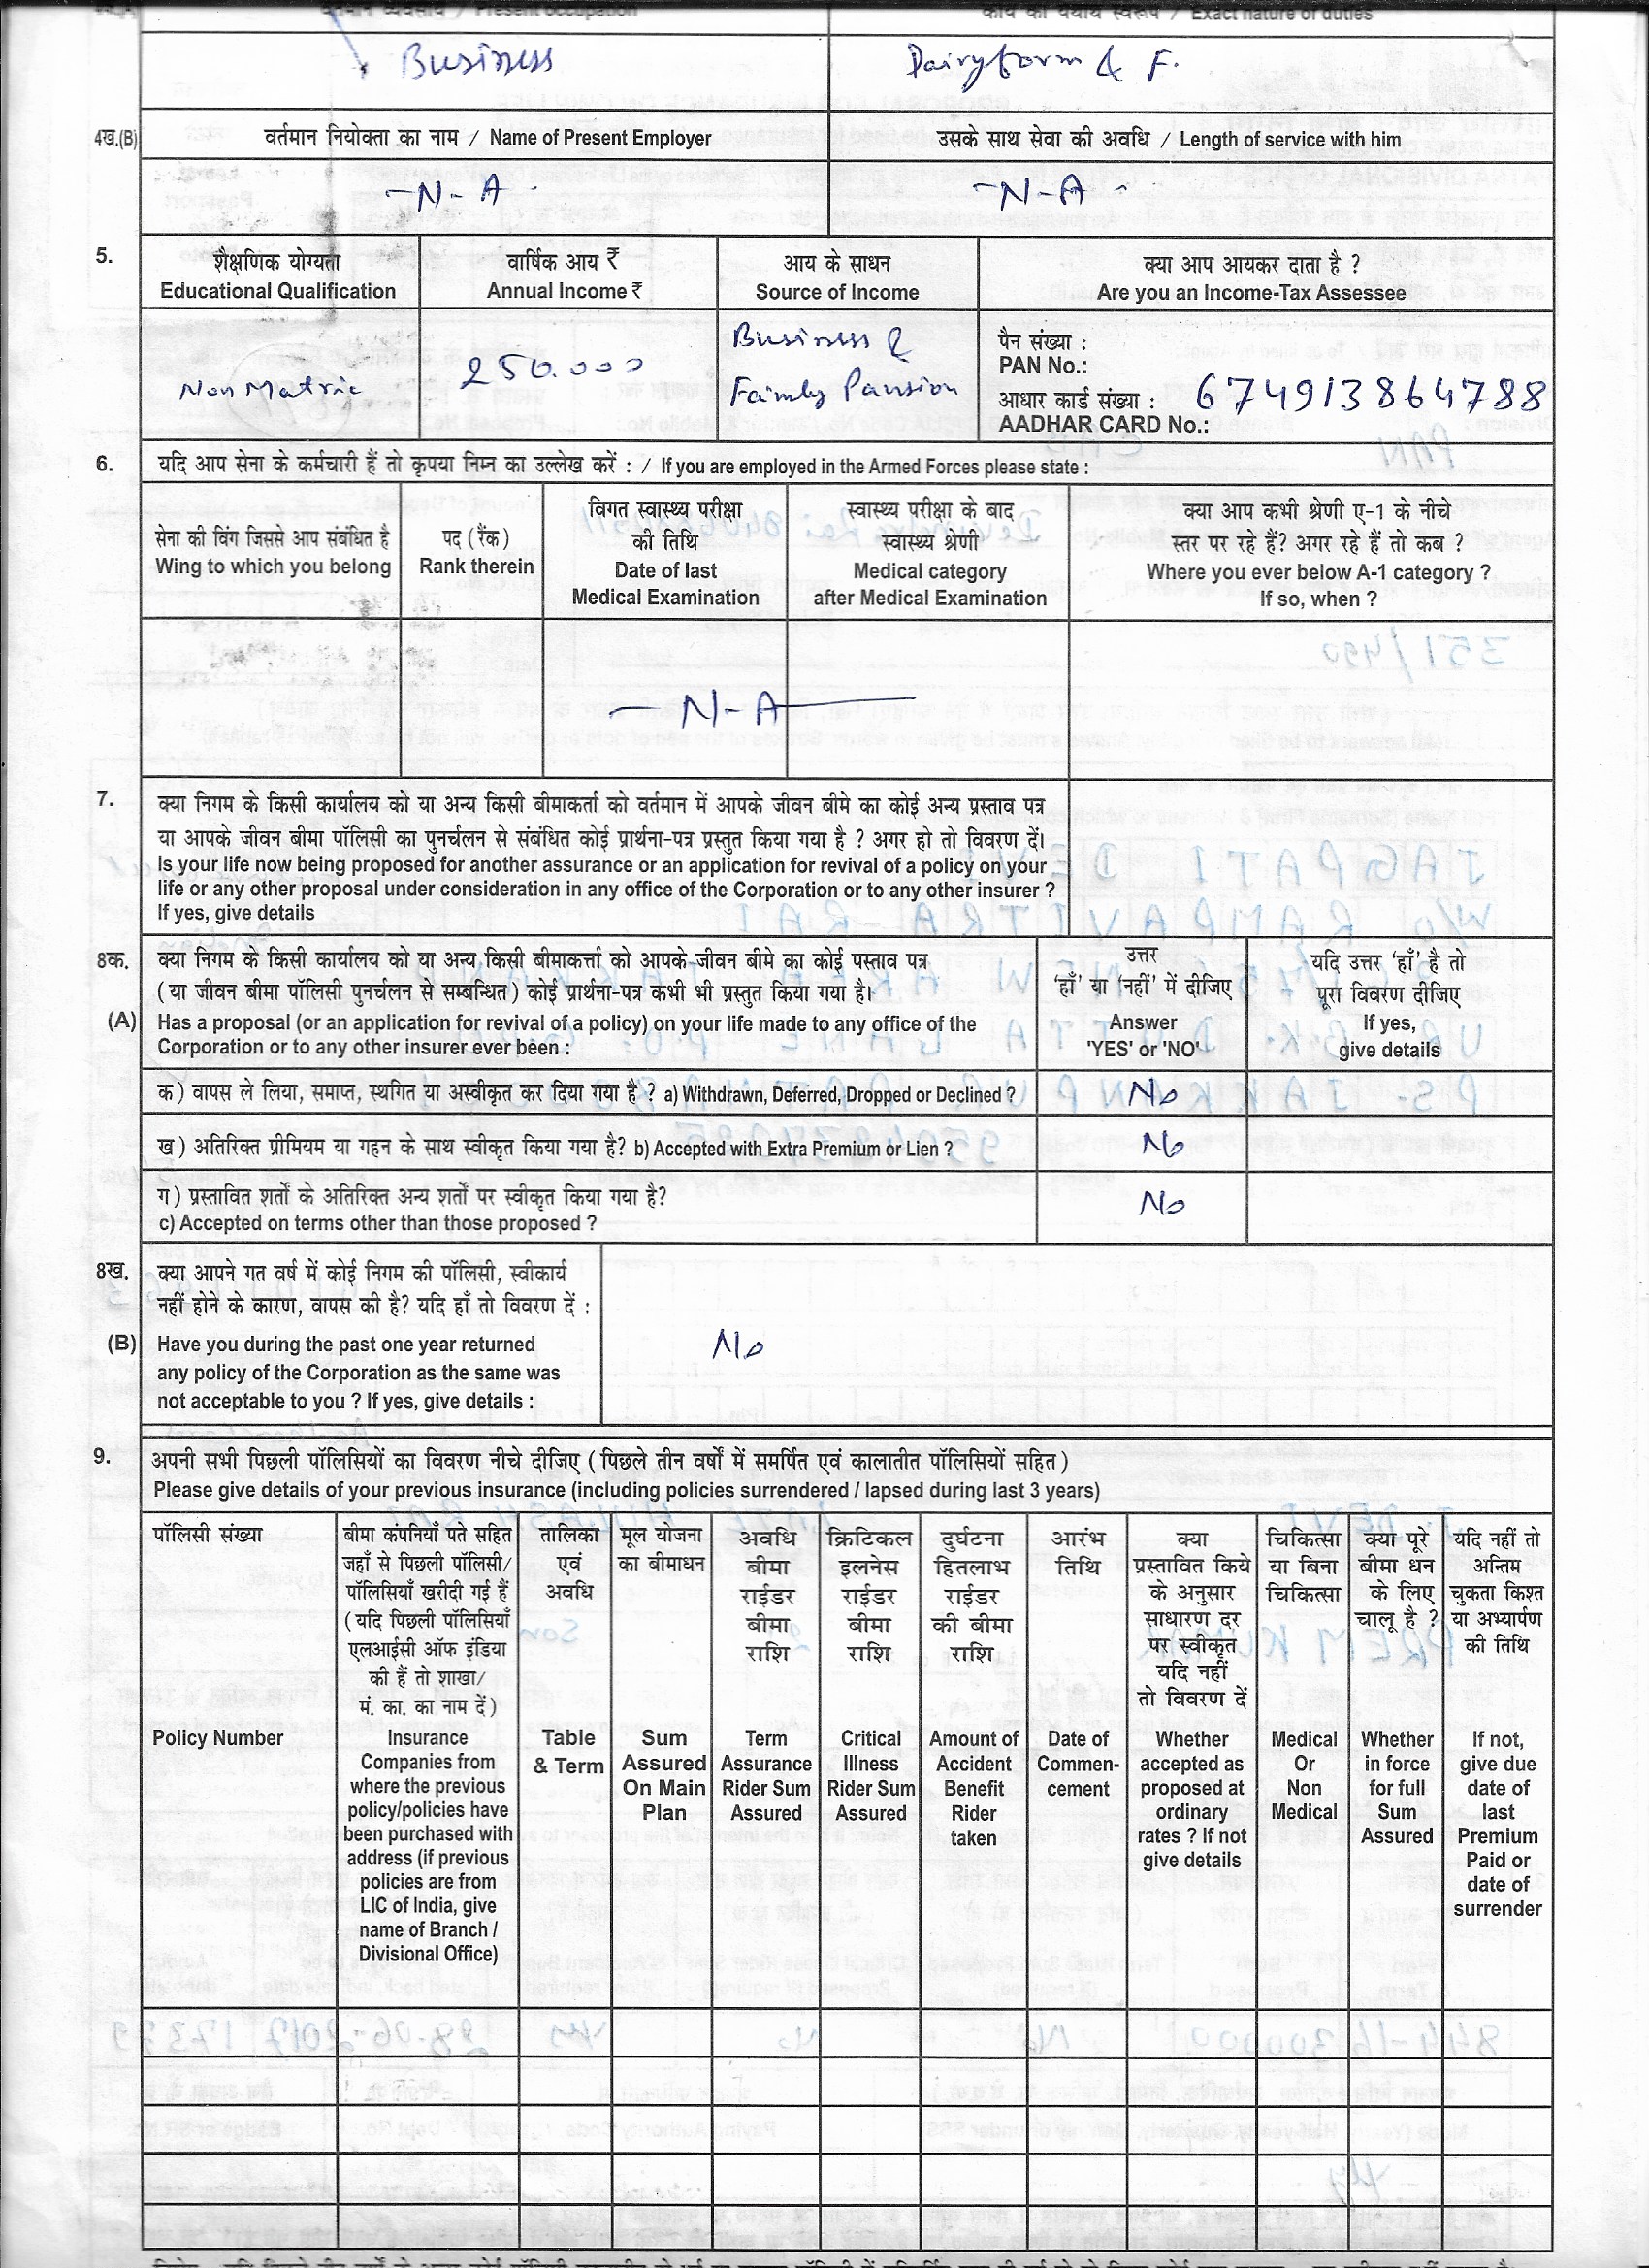 वर्तमान व्यवसाय / Present occupation
कार्य का यथार्थ स्वरूप / Exact nature of duties
Business
Dairyform & F.
4ख.(B) वर्तमान नियोक्ता का नाम / Name of Present Employer
उसके साथ सेवा की अवधि / Length of service with him
-N-A-
-N-A-
5. शैक्षणिक योग्यता
Educational Qualification
वार्षिक आय ₹
Annual Income ₹
आय के साधन
Source of Income
क्या आप आयकर दाता है ?
Are you an Income-Tax Assessee
Non Matric
250.000
Business &
Faimly Pansion
पैन संख्या :
PAN No.:
आधार कार्ड संख्या : 674913864788
AADHAR CARD No.:
6. यदि आप सेना के कर्मचारी हैं तो कृपया निम्न का उल्लेख करें : / If you are employed in the Armed Forces please state :
सेना की विंग जिससे आप संबंधित है
Wing to which you belong
पद (रैंक)
Rank therein
विगत स्वास्थ्य परीक्षा
की तिथि
Date of last
Medical Examination
स्वास्थ्य परीक्षा के बाद
स्वास्थ्य श्रेणी
Medical category
after Medical Examination
क्या आप कभी श्रेणी ए-1 के नीचे
स्तर पर रहे हैं? अगर रहे हैं तो कब ?
Where you ever below A-1 category ?
If so, when ?
- N-A-
7. क्या निगम के किसी कार्यालय को या अन्य किसी बीमाकर्ता को वर्तमान में आपके जीवन बीमे का कोई अन्य प्रस्ताव पत्र
या आपके जीवन बीमा पॉलिसी का पुनर्चलन से संबंधित कोई प्रार्थना-पत्र प्रस्तुत किया गया है ? अगर हो तो विवरण दें।
Is your life now being proposed for another assurance or an application for revival of a policy on your
life or any other proposal under consideration in any office of the Corporation or to any other insurer ?
If yes, give details
8क. क्या निगम के किसी कार्यालय को या अन्य किसी बीमाकर्त्ता को आपके जीवन बीमे का कोई पस्ताव पत्र
(या जीवन बीमा पॉलिसी पुनर्चलन से सम्बन्धित) कोई प्रार्थना-पत्र कभी भी प्रस्तुत किया गया है।
(A) Has a proposal (or an application for revival of a policy) on your life made to any office of the
Corporation or to any other insurer ever been :
उत्तर
'हाँ' या 'नहीं' में दीजिए
Answer
'YES' or 'NO'
यदि उत्तर 'हाँ' है तो
पूरा विवरण दीजिए
If yes,
give details
क) वापस ले लिया, समाप्त, स्थगित या अस्वीकृत कर दिया गया है ? a) Withdrawn, Deferred, Dropped or Declined ? No
ख) अतिरिक्त प्रीमियम या गहन के साथ स्वीकृत किया गया है? b) Accepted with Extra Premium or Lien ? No
ग) प्रस्तावित शर्तों के अतिरिक्त अन्य शर्तों पर स्वीकृत किया गया है?
c) Accepted on terms other than those proposed ? No
8ख. क्या आपने गत वर्ष में कोई निगम की पॉलिसी, स्वीकार्य
नहीं होने के कारण, वापस की है? यदि हाँ तो विवरण दें :
(B) Have you during the past one year returned
any policy of the Corporation as the same was
not acceptable to you ? If yes, give details :
No
9. अपनी सभी पिछली पॉलिसियों का विवरण नीचे दीजिए (पिछले तीन वर्षों में समर्पित एवं कालातीत पॉलिसियों सहित)
Please give details of your previous insurance (including policies surrendered / lapsed during last 3 years)
पॉलिसी संख्या
Policy Number
बीमा कंपनियाँ पते सहित
जहाँ से पिछली पॉलिसी/
पॉलिसियाँ खरीदी गई हैं
(यदि पिछली पॉलिसियाँ
एलआईसी ऑफ इंडिया
की हैं तो शाखा/
मं. का. का नाम दें)
Insurance
Companies from
where the previous
policy/policies have
been purchased with
address (if previous
policies are from
LIC of India, give
name of Branch /
Divisional Office)
तालिका
एवं
अवधि
Table
& Term
मूल योजना
का बीमाधन
Sum
Assured
On Main
Plan
अवधि
बीमा
राईडर
बीमा
राशि
Term
Assurance
Rider Sum
Assured
क्रिटिकल
इलनेस
राईडर
बीमा
राशि
Critical
Illness
Rider Sum
Assured
दुर्घटना
हितलाभ
राईडर
की बीमा
राशि
Amount of
Accident
Benefit
Rider
taken
आरंभ
तिथि
Date of
Commen-
cement
क्या
प्रस्तावित किये
के अनुसार
साधारण दर
पर स्वीकृत
यदि नहीं
तो विवरण दें
Whether
accepted as
proposed at
ordinary
rates ? If not
give details
चिकित्सा
या बिना
चिकित्सा
Medical
Or
Non
Medical
क्या पूरे
बीमा धन
के लिए
चालू है ?
Whether
in force
for full
Sum
Assured
यदि नहीं तो
अन्तिम
चुकता किश्त
या अभ्यार्पण
की तिथि
If not,
give due
date of
last
Premium
Paid or
date of
surrender